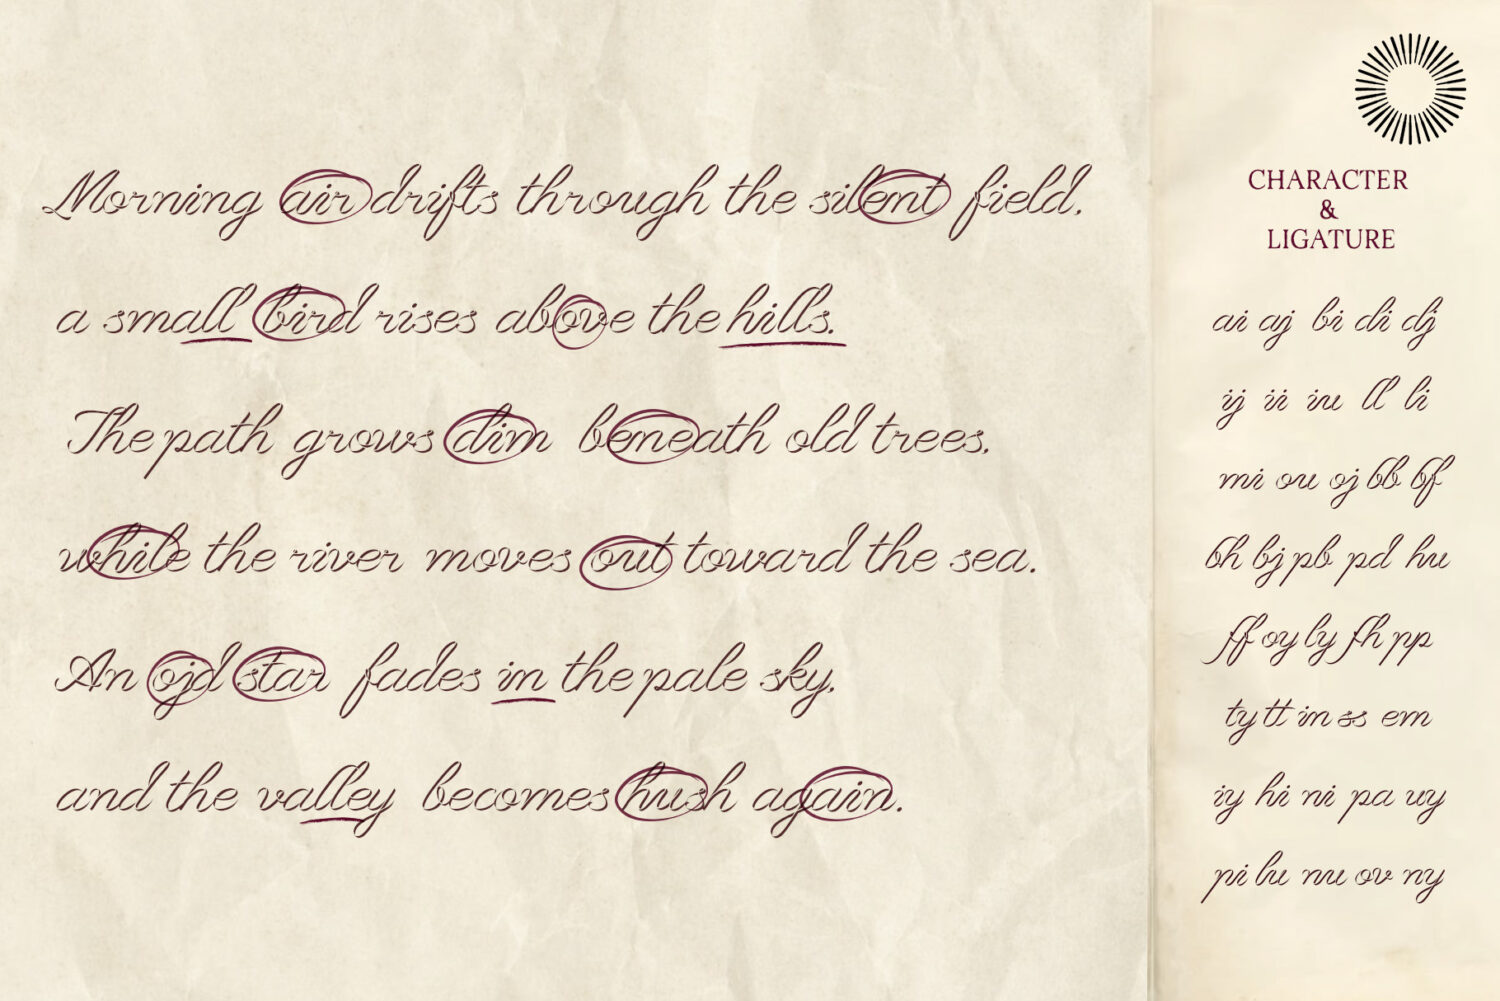 Morning air drifts through the silent field.
a small bird rises above the hills.
The path grows dim beneath old trees.
while the river moves out toward the sea.
An ojd star fades in the pale sky.
and the valley becomes hush again.
CHARACTER
&
LIGATURE
ai aj bi di dj
ij ii iu ll li
mi ou oj bb bf
bh bj pb pd hu
ff oy ly fh pp
ty tt im ss em
iy hi ni pa uy
pi lu nu ov ny